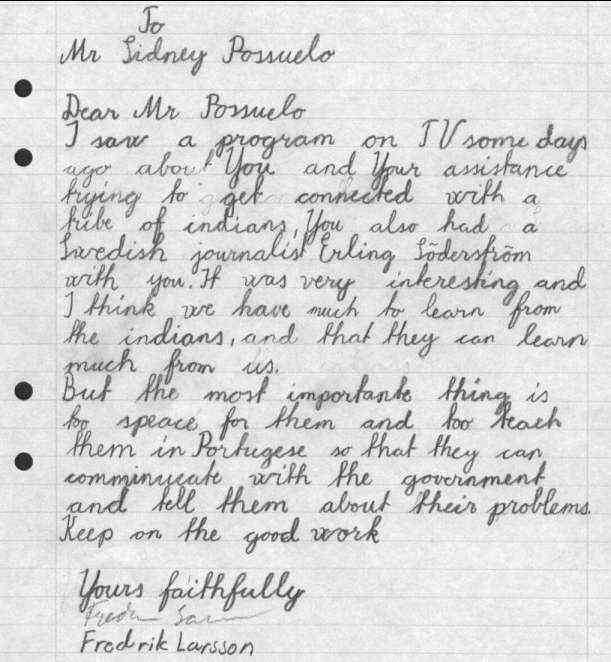 To
Mr Sidney Possuelo
Dear Mr Possuelo
I saw a program on TV some days
ago about You and Your assistance
trying to get connected with a
tribe of indians, You also had a
Swedish journalist Erling Söderström
with you. It was very interesting and
I think we have much to learn from
the indians, and that they can learn
much from us.
But the most importante thing is
too speace for them and too teach
them in Portugese so that they can
comminycate with the government
and tell them about their problems.
Keep on the good work
Yours faithfully
Fredrik Larsson